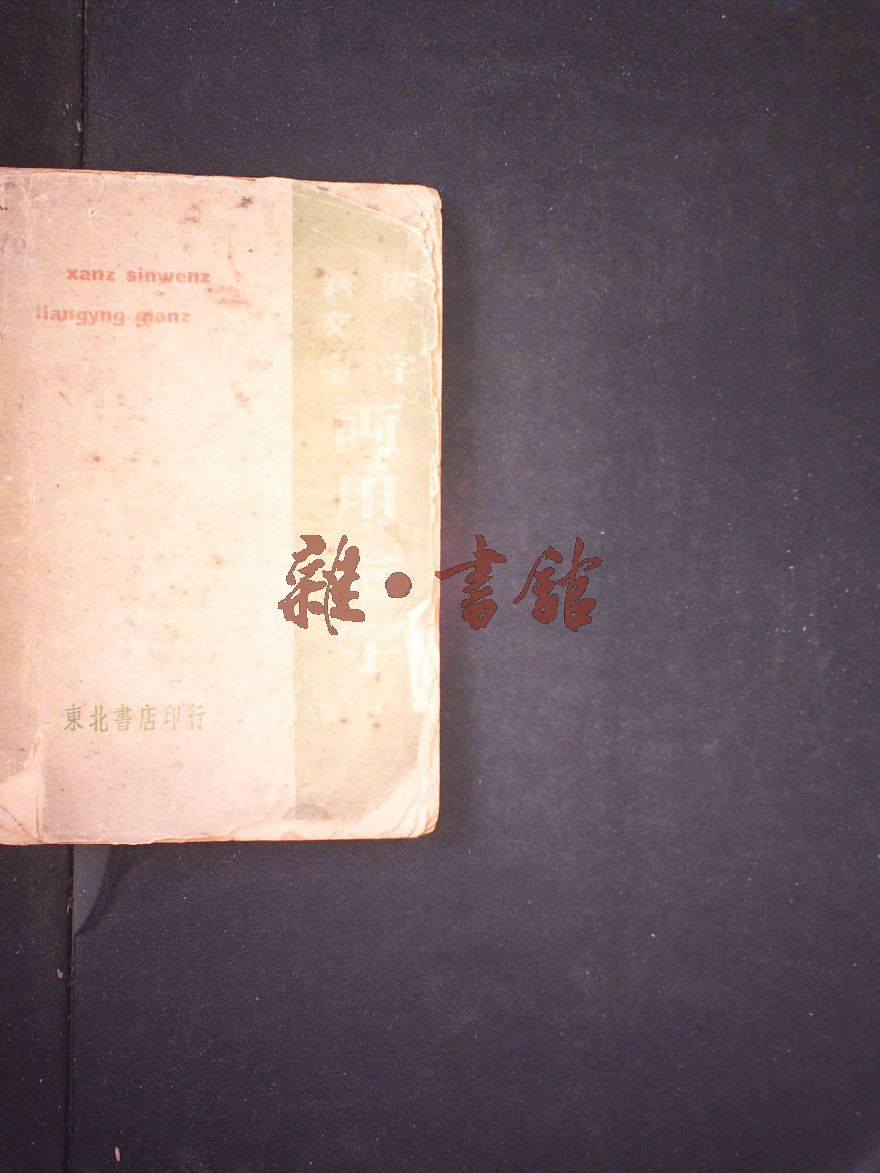 漢字
新文字
両用一字
xanz sinwenz
liangyng manz
東北書店印行
雜·書館